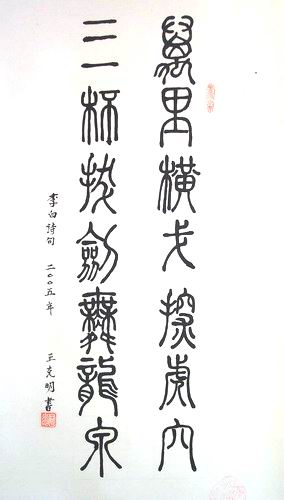 萬里橫戈探虎穴
三杯拔劍舞龍泉
李白詩句 二〇〇五年 王克明書